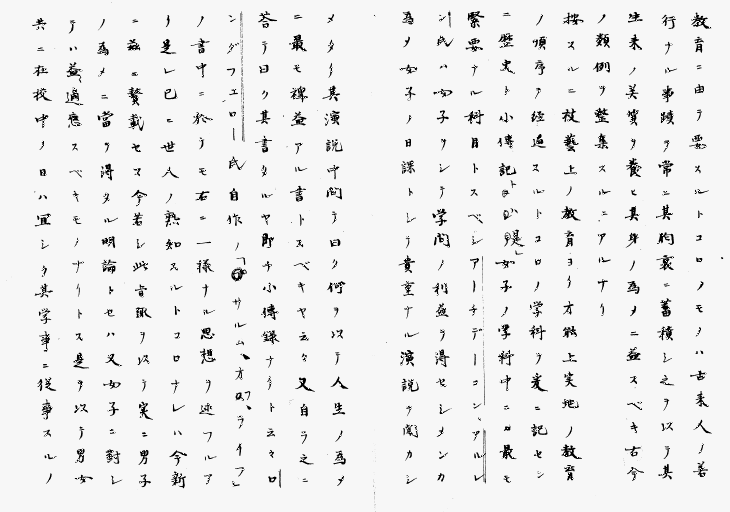 教育ニ由テ要スルトコロノモノハ古来人ノ善
行ナル事蹟ヲ常ニ其胸裏ニ蓄積シ之ヲ以テ其
生来ノ美質ヲ養ヒ其身ノ為メニ益スベキ古今
ノ類例ヲ整集スルニアルナリ
按スルニ技藝上ノ教育ヨリ才能上実地ノ教育
ノ順序ヲ経過スルトコロノ学科ヲ爰ニ記セシ
ニ歴史ト小傳記ト是」女子ノ学科中ニ最モ
緊要ナル科目トスベシアーチデーコン、アルレ
ン氏ハ女子ヲシテ学問ノ利益ヲ得セシメンカ
為メ女子ノ日課トシテ貴重ナル演説ヲ聞カシ
メタリ其演説中問テ曰ク何ヲ以テ人生ノ為メ
ニ最モ裨益アル書トスベキヤ云々又自ラ之ニ
答テ曰ク其書タルヤ即チ小傳録ナリト云々ロ
ングフエロー氏自作ノ「サルム、オフ、ライフ」
ノ書中ニ於テモ右ニ一様ナル思想ヲ述フルア
リ是レ已ニ世人ノ熟知スルトコロナレハ今新
ニ茲ニ贅載セス今若シ此旨趣ヲ以テ実ニ男子
ノ為メニ當ヲ得タル明論トセハ又女子ニ對シ
テハ益適應スベキモノナリトス是ヲ以テ男女
共ニ在校中ノ日ハ宜シク其学事ニ従事スルノ